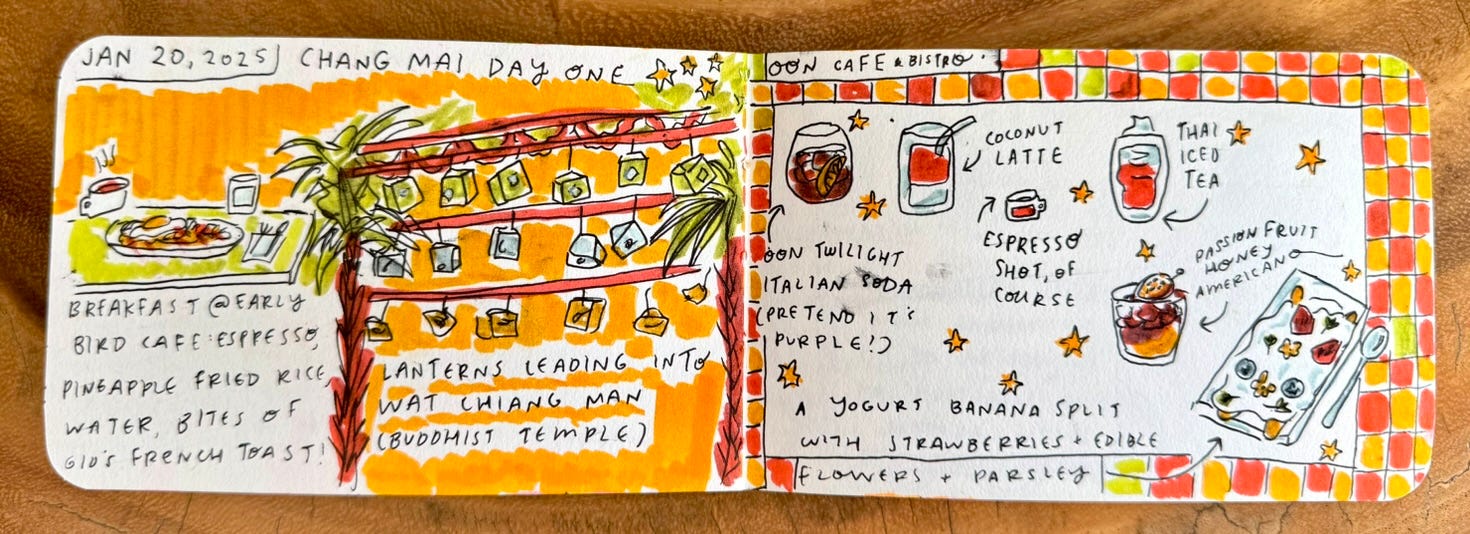 JAN 20, 2025
CHANG MAI DAY ONE
BREAKFAST @ EARLY
BIRD CAFE: ESPRESSO,
PINEAPPLE FRIED RICE
WATER, BITES OF
GIO'S FRENCH TOAST!
LANTERNS LEADING INTO
WAT CHIANG MAN
(BUDDHIST TEMPLE)
OON CAFE & BISTRO
COCONUT
LATTE
THAI
ICED
TEA
ESPRESSO
SHOT, OF
COURSE
OON TWILIGHT
ITALIAN SODA
(PRETEND IT'S
PURPLE!)
PASSION FRUIT
HONEY
AMERICANO
A YOGURT BANANA SPLIT
WITH STRAWBERRIES + EDIBLE
FLOWERS + PARSLEY